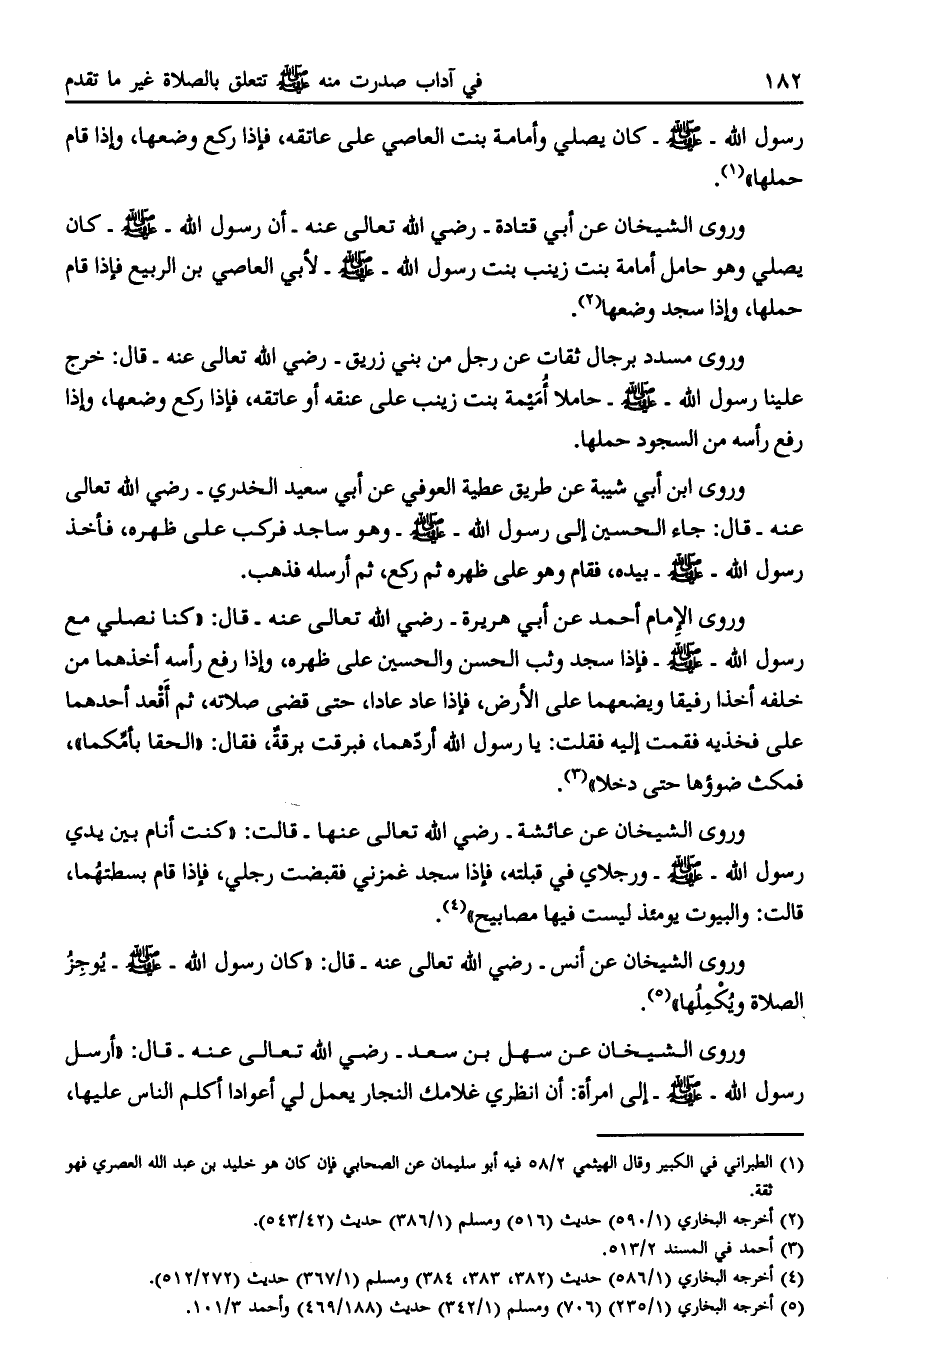 ١٨٢ في آداب صدرت منه ﷺ تتعلق بالصلاة غير ما تقدم
رسول الله ـ ﷺ ـ كان يصلي وأمامة بنت العاصي على عاتقه، فإذا ركع وضعها، وإذا قام
حملها»(١).
وروى الشيخان عن أبي قتادة ـ رضي الله تعالى عنه ـ أن رسول الله ـ ﷺ ـ كان
يصلي وهو حامل أمامة بنت زينب بنت رسول الله ـ ﷺ ـ لأبي العاصي بن الربيع فإذا قام
حملها، وإذا سجد وضعها(٢).
وروى مسدد برجال ثقات عن رجل من بني زريق ـ رضي الله تعالى عنه ـ قال: خرج
علينا رسول الله ـ ﷺ ـ حاملا أُمَيْمة بنت زينب على عنقه أو عاتقه، فإذا ركع وضعها، وإذا
رفع رأسه من السجود حملها.
وروى ابن أبي شيبة عن طريق عطية العوفي عن أبي سعيد الخدري ـ رضي الله تعالى
عنه ـ قال: جاء الحسين إلى رسول الله ـ ﷺ ـ وهو ساجد فركب على ظهره، فأخذ
رسول الله ـ ﷺ ـ بيده، فقام وهو على ظهره ثم ركع، ثم أرسله فذهب.
وروى الإِمام أحمد عن أبي هريرة ـ رضي الله تعالى عنه ـ قال: «كنا نصلي مع
رسول الله ـ ﷺ ـ فإذا سجد وثب الحسن والحسين على ظهره، وإذا رفع رأسه أخذهما من
خلفه أخذا رفيقا ويضعهما على الأرض، فإذا عاد عادا، حتى قضى صلاته، ثم أَقْعد أحدهما
على فخذيه فقمت إليه فقلت: يا رسول الله أردّهما، فبرقت برقةٌ، فقال: «الحقا بأمّكما»،
فمكث ضوؤها حتى دخلا»(٣).
وروى الشيخان عن عائشة ـ رضي الله تعالى عنها ـ قالت: «كنت أنام بين يدي
رسول الله ـ ﷺ ـ ورجلاي في قبلته، فإذا سجد غمزني فقبضت رجلي، فإذا قام بسطتهُما،
قالت: والبيوت يومئذ ليست فيها مصابيح»(٤).
وروى الشيخان عن أنس ـ رضي الله تعالى عنه ـ قال: «كان رسول الله ـ ﷺ ـ يُوجِزُ
الصلاة ويُكْمِلُها»(٥).
وروى الشيخان عن سهل بن سعد ـ رضي الله تعالى عنه ـ قال: «أرسل
رسول الله ـ ﷺ ـ إلى امرأة: أن انظري غلامك النجار يعمل لي أعوادا أكلم الناس عليها،
(١) الطبراني في الكبير وقال الهيثمي ٥٨/٢ فيه أبو سليمان عن الصحابي فإن كان هو خليد بن عبد الله العصري فهو
ثقة.
(٢) أخرجه البخاري (٥٩٠/١) حديث (٥١٦) ومسلم (٣٨٦/١) حديث (٥٤٣/٤٢).
(٣) أحمد في المسند ٥١٣/٢.
(٤) أخرجه البخاري (٥٨٦/١) حديث (٣٨٢، ٣٨٣، ٣٨٤) ومسلم (٣٦٧/١) حديث (٥١٢/٢٧٢).
(٥) أخرجه البخاري (٢٣٥/١) (٧٠٦) ومسلم (٣٤٢/١) حديث (٤٦٩/١٨٨) وأحمد ١٠١/٣.